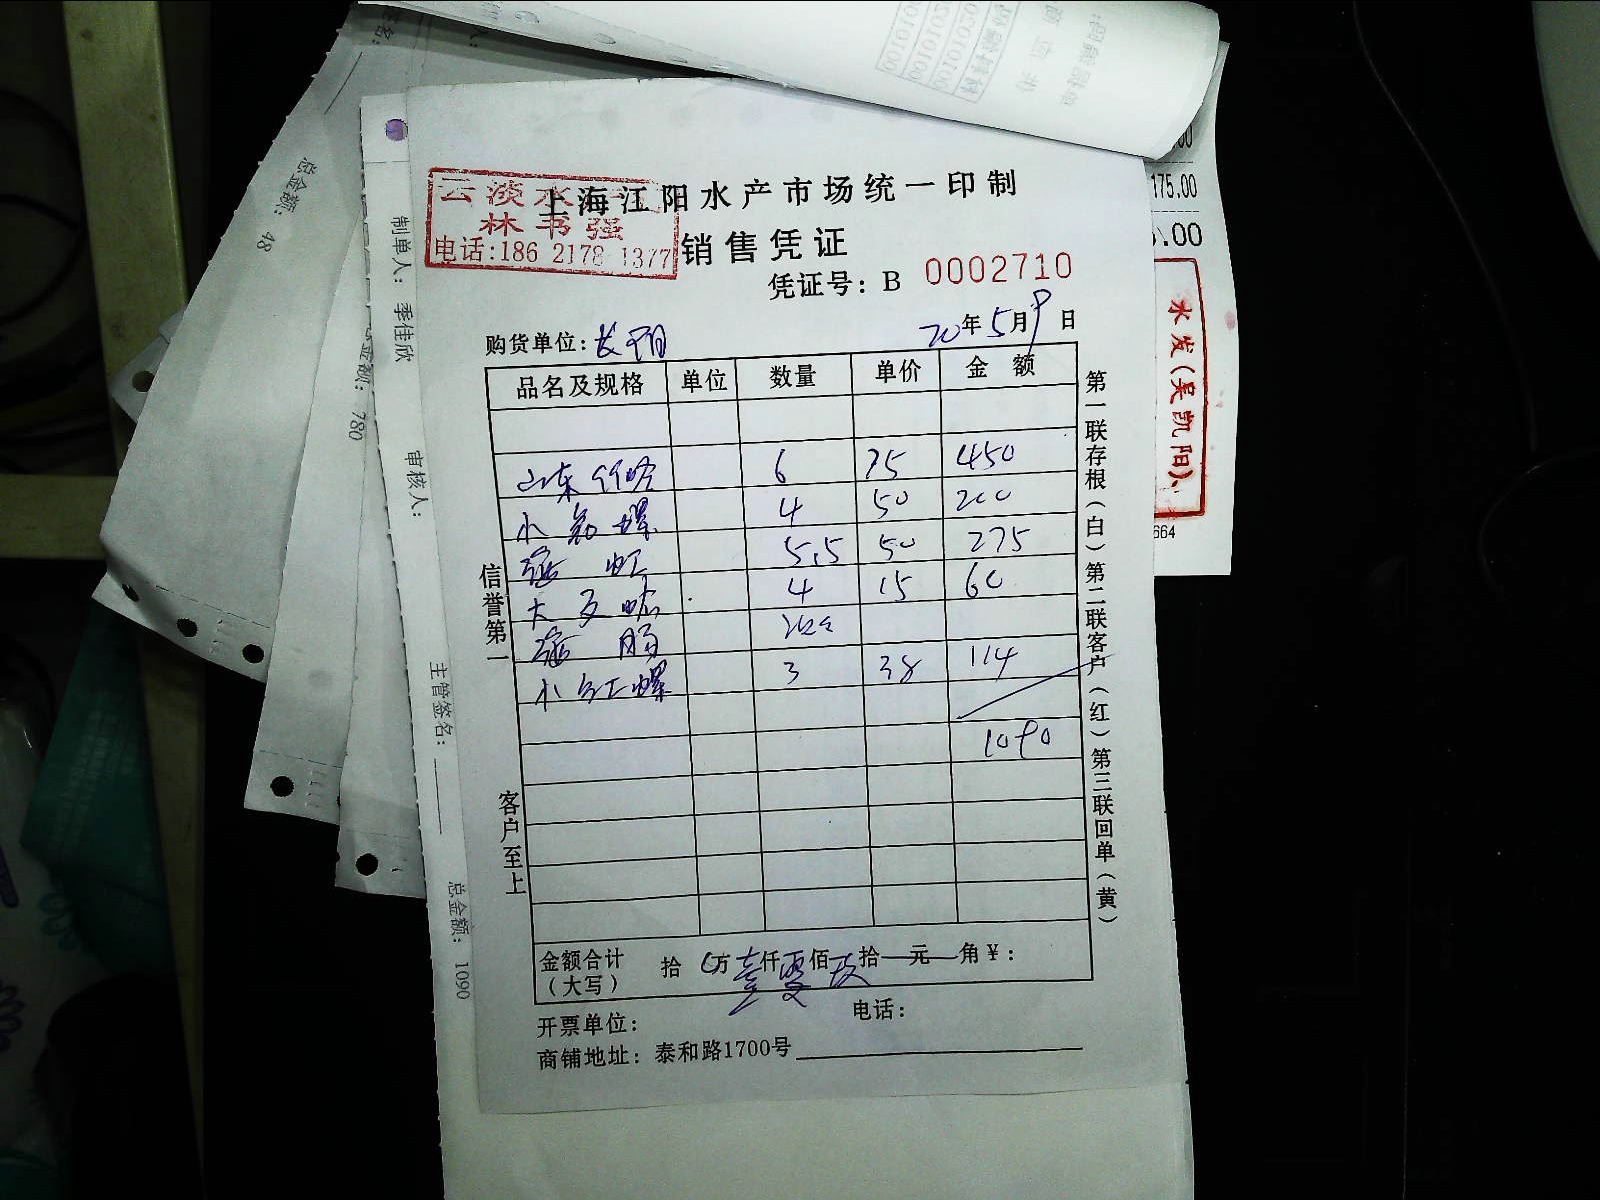 云淡水产
林书强
电话:186 2178 1377
上海江阳水产市场统一印制
销售凭证
凭证号：B 0002710
购货单位: 长
20年5月9日
品名及规格 单位 数量 单价 金额
山东 6 75 450
小 螺 4 50 200
虹 5.5 50 275
大 4 15 60
肠
小红螺 3 38 114
1090
金额合计（大写） 拾 万壹仟零佰 拾 元 角¥：
开票单位： 电话：
商铺地址：泰和路1700号
信誉第一 客户至上
第一联存根（白）第二联客户（红）第三联回单（黄）
制单人： 季佳欣 审核人： 主管签名： 总金额： 1090
总金额： 780
总金额： 48
175.00
.00
水发(吴凯阳)
664